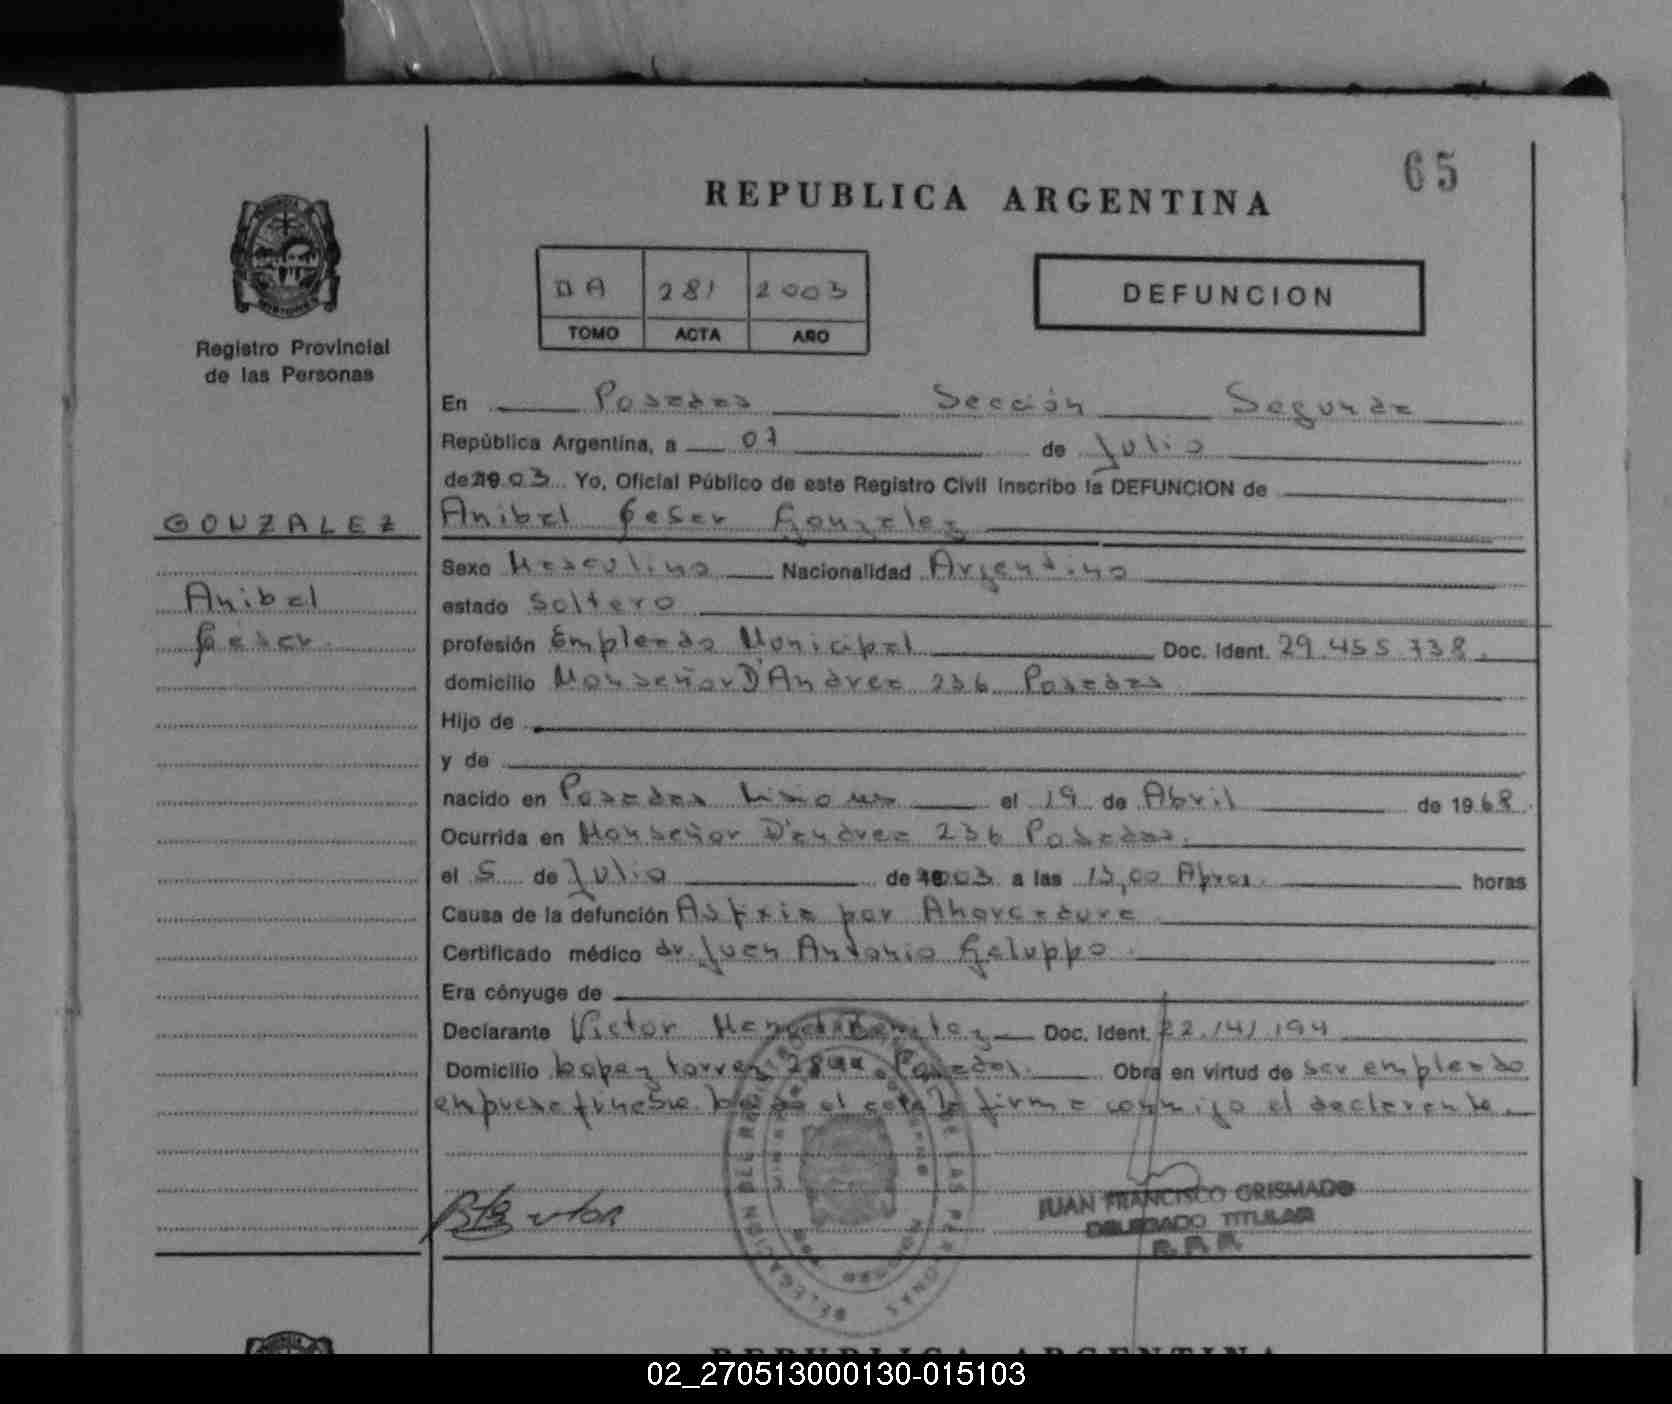 65
REPUBLICA ARGENTINA
DA 281 2003
TOMO ACTA AÑO
DEFUNCION
Registro Provincial
de las Personas
GONZALEZ
Anibal
Cesar
En Posadas Sección Segunda
República Argentina, a 07 de Julio
de 2003 Yo, Oficial Público de este Registro Civil Inscribo la DEFUNCION de
Anibal Cesar Gonzalez
Sexo Masculino Nacionalidad Argentino
estado Soltero
profesión Empleado Municipal Doc. Ident. 29.455.738
domicilio Monseñor D'Andrea 236 Posadas
Hijo de
y de
nacido en Posadas Misiones el 19 de Abril de 1968
Ocurrida en Monseñor D'andrea 236 Posadas.
el 5 de Julio de 2003 a las 15,00 Aprox. horas
Causa de la defunción Asfixia por Ahorcadura
Certificado médico dr. Juan Antonio Galuppo.
Era cónyuge de
Declarante Victor Benitez Doc. Ident. 22.141.194
Domicilio Lopez torres Posadas. Obra en virtud de ser empleado
empresa funebre. el acta la firma conmigo el declarante.
JUAN FRANCISCO GRISMADO
DELEGADO TITULAR
R. P. P.
DELEGACION DEL REGISTRO DE LAS PERSONAS
REPUBLICA ARGENTINA
02_270513000130-015103